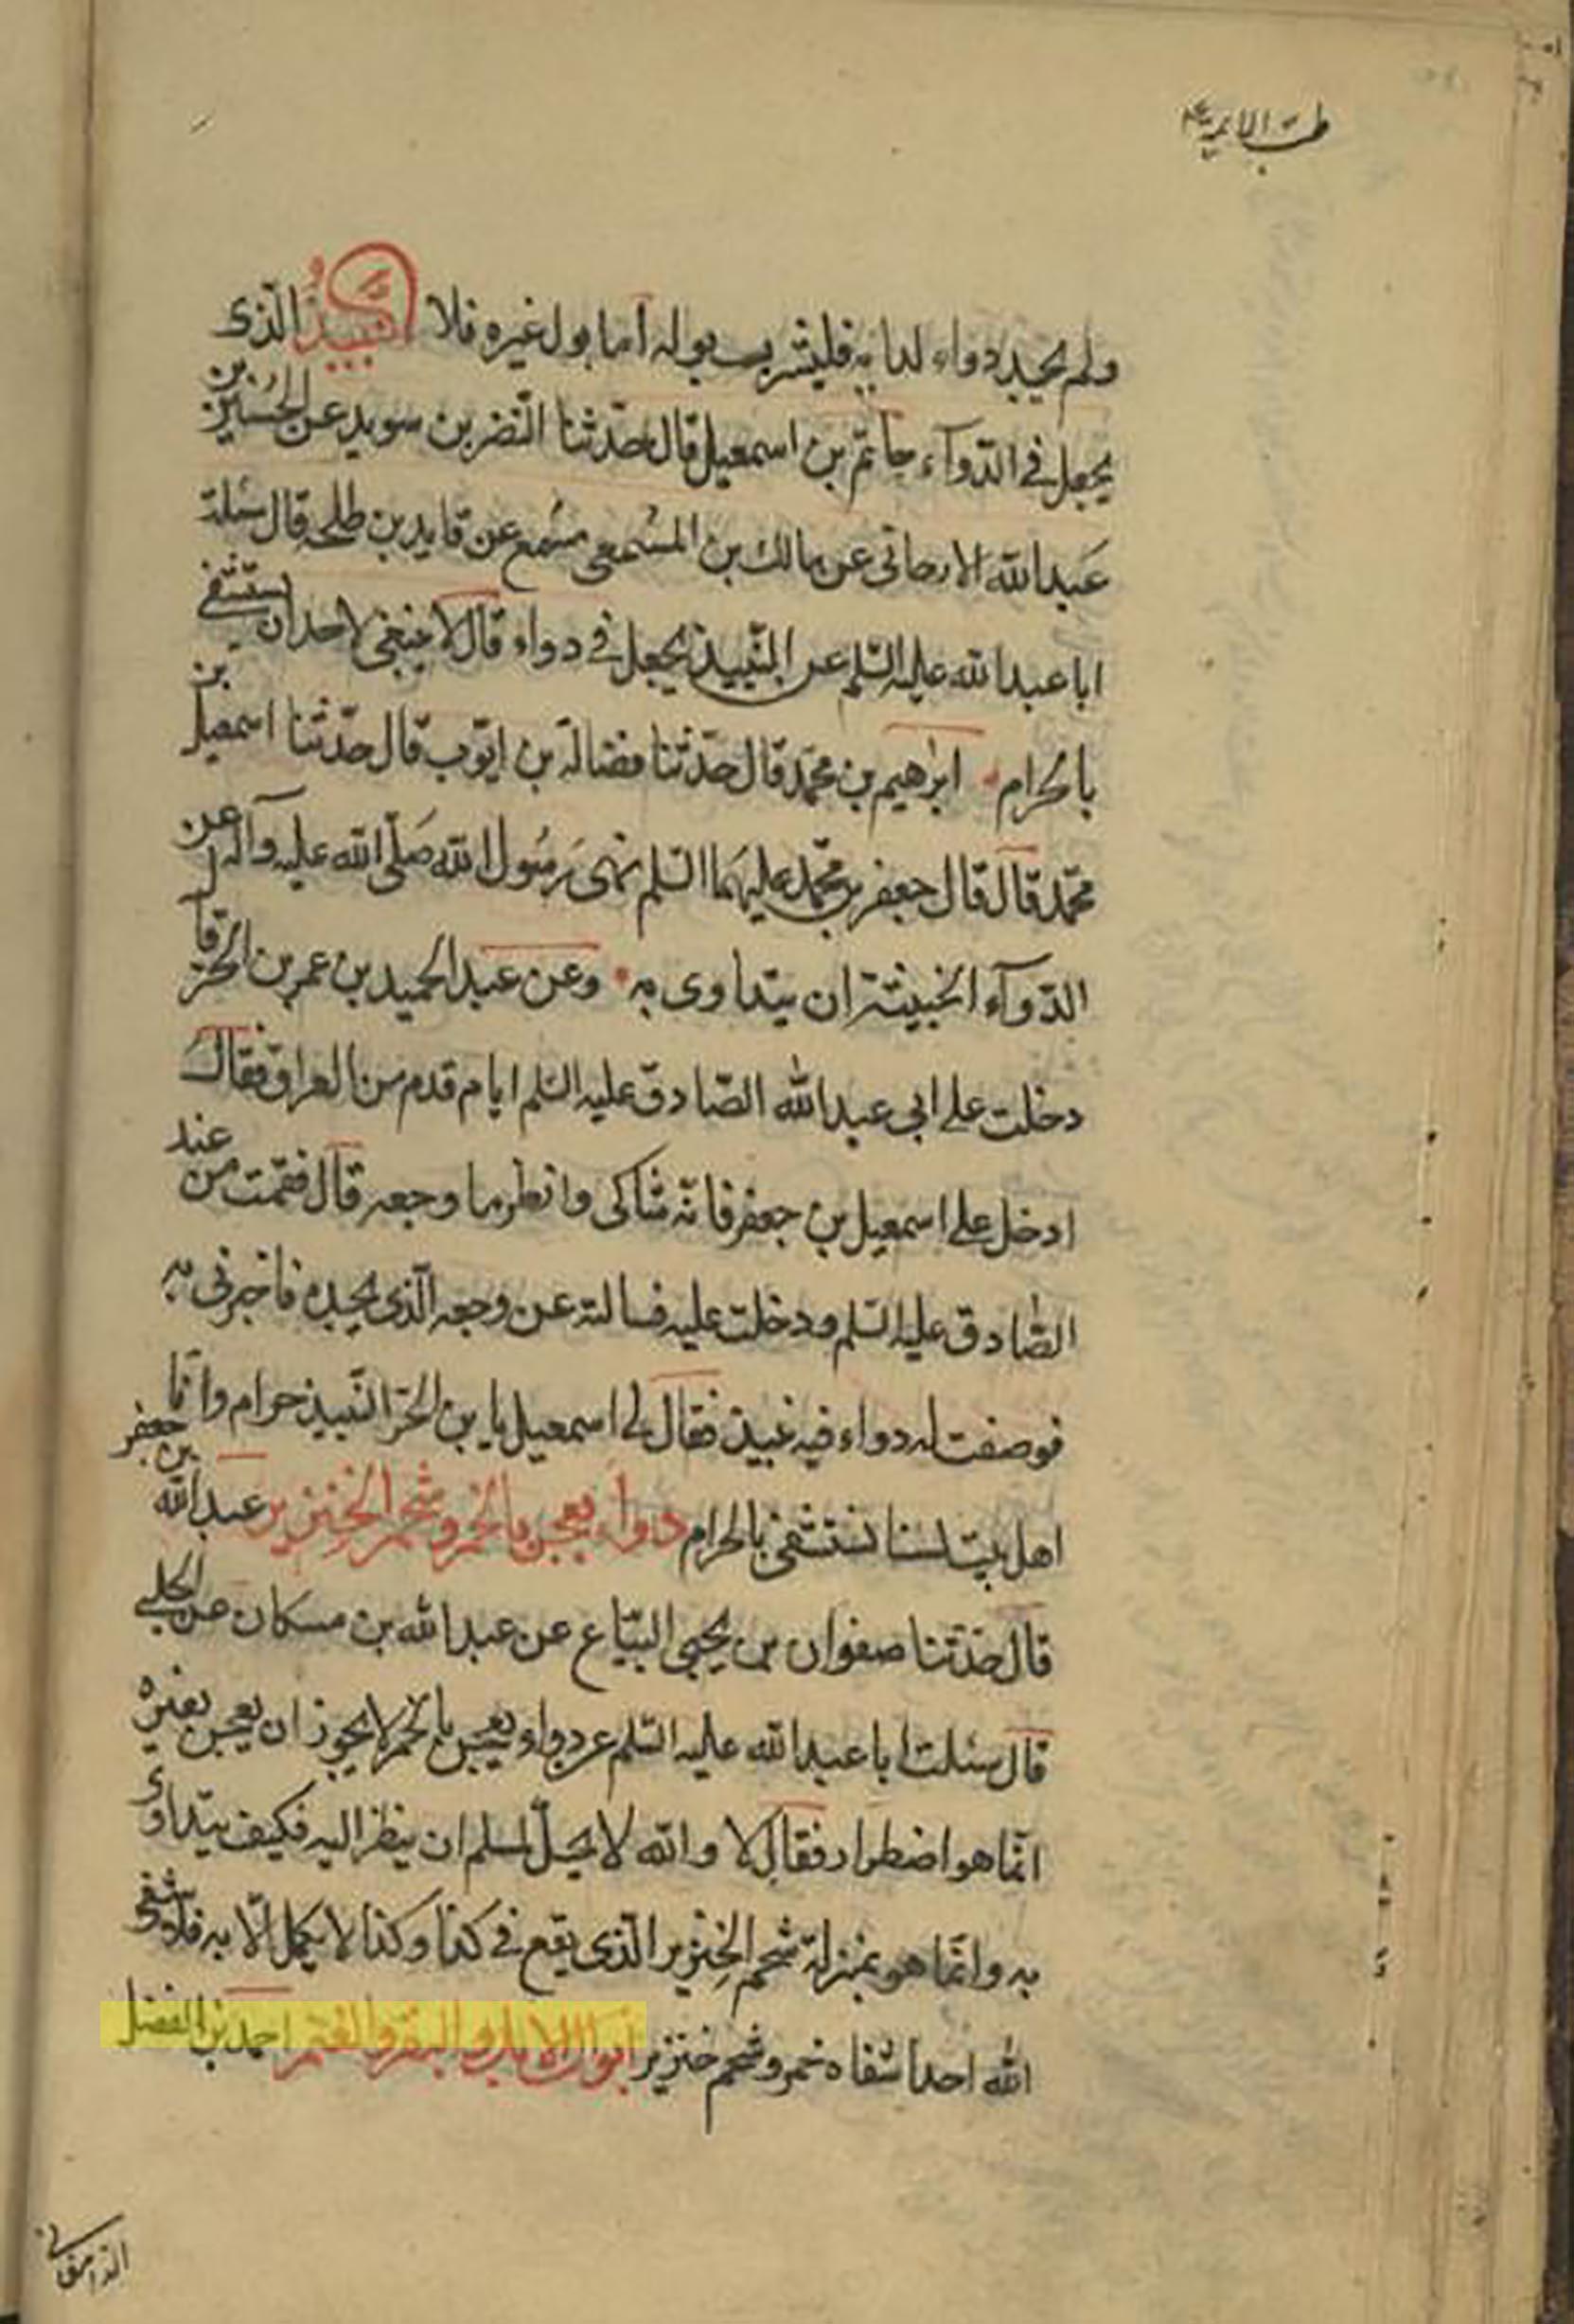 طب الائمة
ولم يجد دواء لدائه فليشرب بوله اما بول غيره فلا النبيذ الذى
يجعل فى الدوآء حاتم بن اسمعيل قال حدثنا النضر بن سويد عن الحسين بن
عبد الله الارجانى عن مالك بن المسمعى مسمع عن قايد بن طلحه قال سئلت
ابا عبد الله عليه السلم عن النبيذ يجعل فى دواء قال لا ينبغى لاحد ان يستشفى
بالحرام ابرهيم بن محمد قال حدثنا فضالة بن ايوب قال حدثنا اسمعيل بن
محمد قال قال جعفر بن محمد عليهما السلم نهى رسول الله صلى الله عليه وآله عن
الدوآء الخبيثة ان يتداوى به وعن عبد الحميد بن عمر بن الحر قال
دخلت على ابى عبد الله الصادق عليه السلم ايام قدم من العراق فقال
ادخل على اسمعيل بن جعفر فانه شاكى وانظر ما وجعه قال فقمت من عند
الصادق عليه السلم ودخلت عليه فسالته عن وجعه الذى يجده فاخبرنى به
فوصفت له دواء فيه نبيذ فقال لى اسمعيل يا بن الحر النبيذ حرام وانما
اهل بيت لسنا نستشفى بالحرام دواء يعجن بالخمر وشحم الخنزير عبد الله بن جعفر
قال حدثنا صفوان بن يحيى البياع عن عبد الله بن مسكان عن الحلبى
قال سئلت ابا عبد الله عليه السلم عن دواء يعجن بالخمر لا يجوز ان يعجن بغيره
انما هو اضطرار فقال لا والله لا يحل لمسلم ان ينظر اليه فكيف يتداوى
به وانما هو بمنزلة شحم الخنزير الذى يقع فى كذا وكذا لا يكمل الا به فلا شفى
الله احدا شفاه خمر وشحم خنزير ابوال الابل والبقر والغنم احمد بن الفضل
الدامغانى